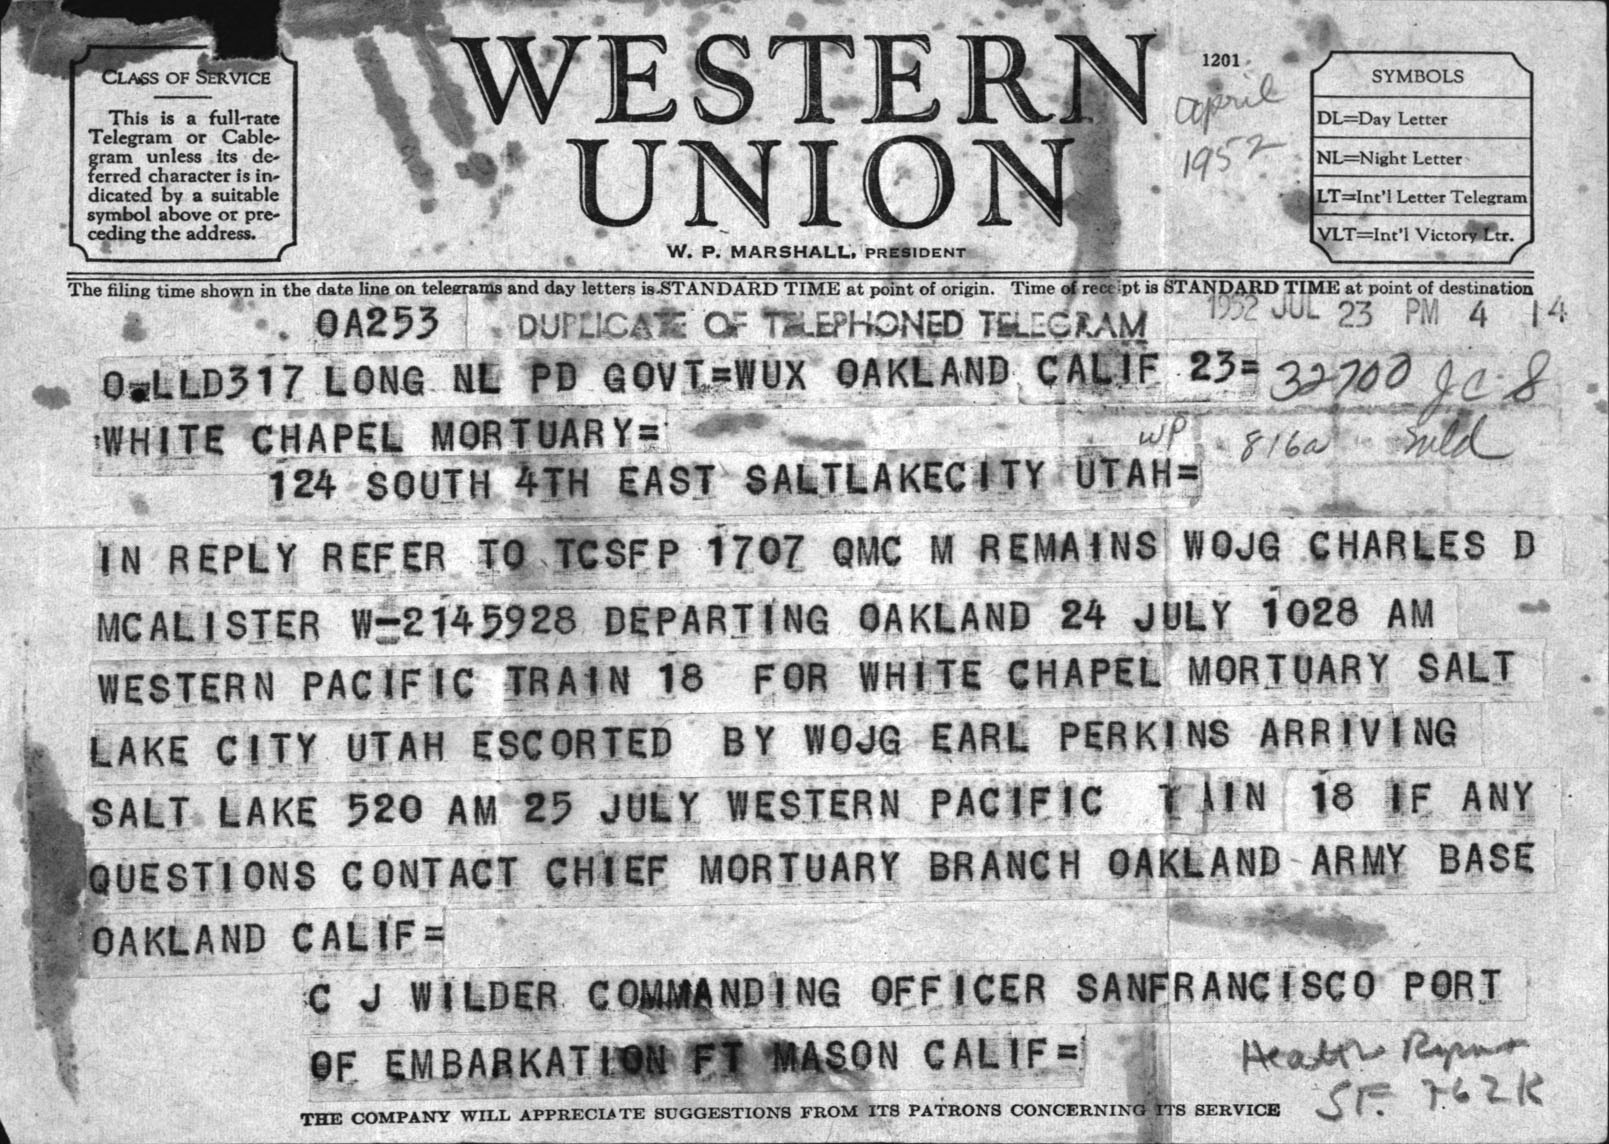 CLASS OF SERVICE
This is a full-rate
Telegram or Cable-
gram unless its de-
ferred character is in-
dicated by a suitable
symbol above or pre-
ceding the address.
WESTERN
UNION
W. P. MARSHALL, PRESIDENT
1201
april
1952
SYMBOLS
DL=Day Letter
NL=Night Letter
LT=Int'l Letter Telegram
VLT=Int'l Victory Ltr.
The filing time shown in the date line on telegrams and day letters is STANDARD TIME at point of origin. Time of receipt is STANDARD TIME at point of destination
OA253 DUPLICATE OF TELEPHONED TELEGRAM 1952 JUL 23 PM 4 14
O.LLD317 LONG NL PD GOVT=WUX OAKLAND CALIF 23= 32700 JC
WHITE CHAPEL MORTUARY= WP 816a
124 SOUTH 4TH EAST SALTLAKECITY UTAH=
IN REPLY REFER TO TCSFP 1707 QMC M REMAINS WOJG CHARLES D
MCALISTER W-2145928 DEPARTING OAKLAND 24 JULY 1028 AM
WESTERN PACIFIC TRAIN 18 FOR WHITE CHAPEL MORTUARY SALT
LAKE CITY UTAH ESCORTED BY WOJG EARL PERKINS ARRIVING
SALT LAKE 520 AM 25 JULY WESTERN PACIFIC T AIN 18 IF ANY
QUESTIONS CONTACT CHIEF MORTUARY BRANCH OAKLAND ARMY BASE
OAKLAND CALIF=
C J WILDER COMMANDING OFFICER SANFRANCISCO PORT
OF EMBARKATION FT MASON CALIF=
Health
SF. 762K
THE COMPANY WILL APPRECIATE SUGGESTIONS FROM ITS PATRONS CONCERNING ITS SERVICE